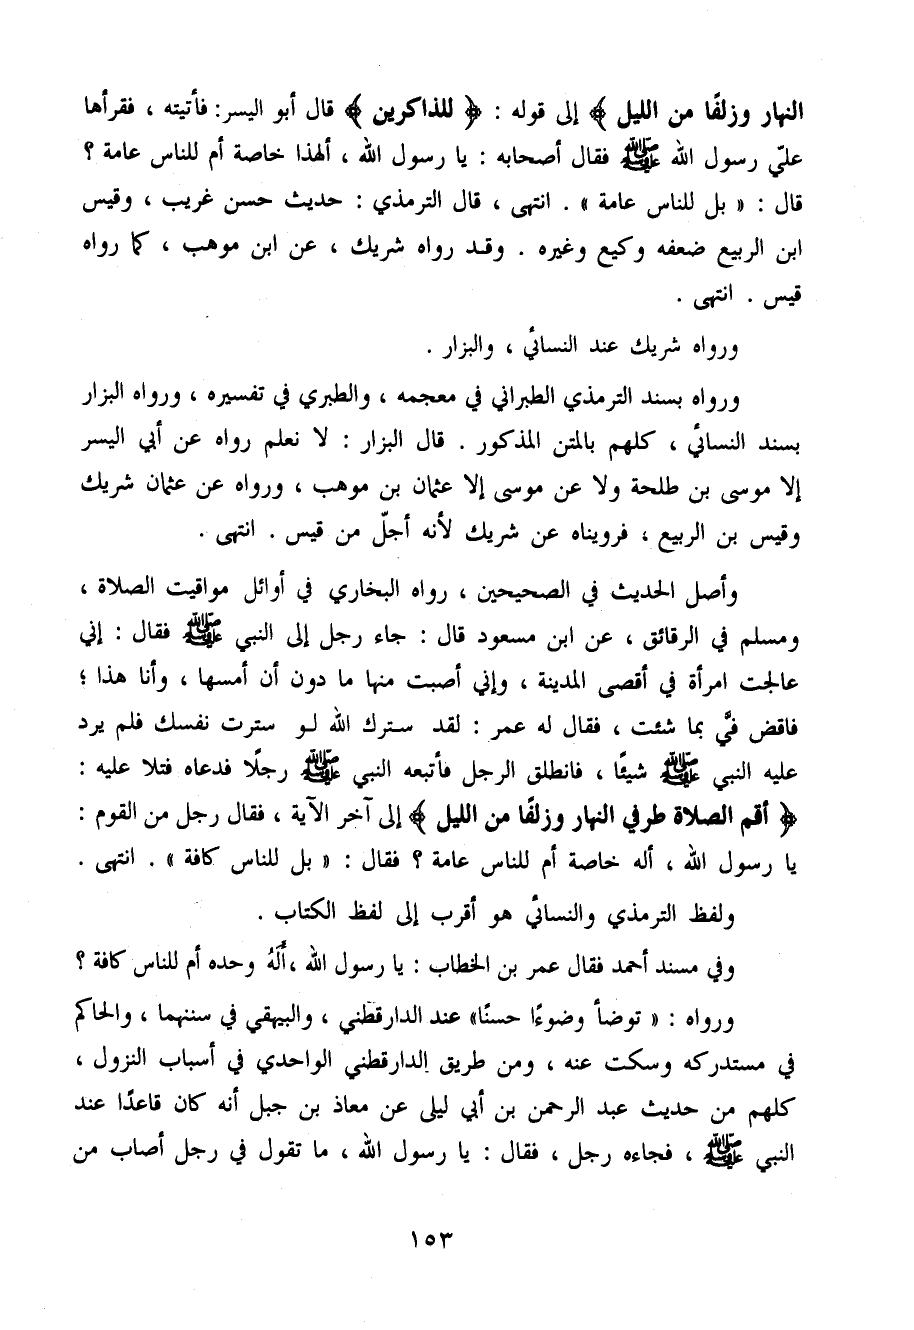 النهار وزلفًا من الليل ﴾ إلى قوله : ﴿ للذاكرين ﴾ قال أبو اليسر: فأتيته ، فقرأها
عليّ رسول الله ﷺ فقال أصحابه : يا رسول الله ، ألهذا خاصة أم للناس عامة ؟
قال : « بل للناس عامة » . انتهى ، قال الترمذي : حديث حسن غريب ، وقيس
ابن الربيع ضعفه وكيع وغيره . وقد رواه شريك ، عن ابن موهب ، كما رواه
قيس . انتهى .
ورواه شريك عند النسائي ، والبزار .
ورواه بسند الترمذي الطبراني في معجمه ، والطبري في تفسيره ، ورواه البزار
بسند النسائي ، كلهم بالمتن المذكور . قال البزار : لا نعلم رواه عن أبي اليسر
إلا موسى بن طلحة ولا عن موسى إلا عثمان بن موهب ، ورواه عن عثمان شريك
وقيس بن الربيع ، فرويناه عن شريك لأنه أجلّ من قيس . انتهى .
وأصل الحديث في الصحيحين ، رواه البخاري في أوائل مواقيت الصلاة ،
ومسلم في الرقائق ، عن ابن مسعود قال : جاء رجل إلى النبي ﷺ فقال : إني
عالجت امرأة في أقصى المدينة ، وإني أصبت منها ما دون أن أمسها ، وأنا هذا ؛
فاقض فيَّ بما شئت ، فقال له عمر : لقد سترك الله لو سترت نفسك فلم يرد
عليه النبي ﷺ شيئًا ، فانطلق الرجل فأتبعه النبي ﷺ رجلًا فدعاه فتلا عليه :
﴿ أقم الصلاة طرفي النهار وزلفًا من الليل ﴾ إلى آخر الآية ، فقال رجل من القوم :
يا رسول الله ، أله خاصة أم للناس عامة ؟ فقال : « بل للناس كافة » . انتهى .
ولفظ الترمذي والنسائي هو أقرب إلى لفظ الكتاب .
وفي مسند أحمد فقال عمر بن الخطاب : يا رسول الله ،أَلَهُ وحده أم للناس كافة ؟
ورواه : « توضأ وضوءًا حسنًا» عند الدارقطني ، والبيهقي في سننهما ، والحاكم
في مستدركه وسكت عنه ، ومن طريق الدارقطني الواحدي في أسباب النزول ،
كلهم من حديث عبد الرحمن بن أبي ليلى عن معاذ بن جبل أنه كان قاعدًا عند
النبي ﷺ ، فجاءه رجل ، فقال : يا رسول الله ، ما تقول في رجل أصاب من
١٥٣